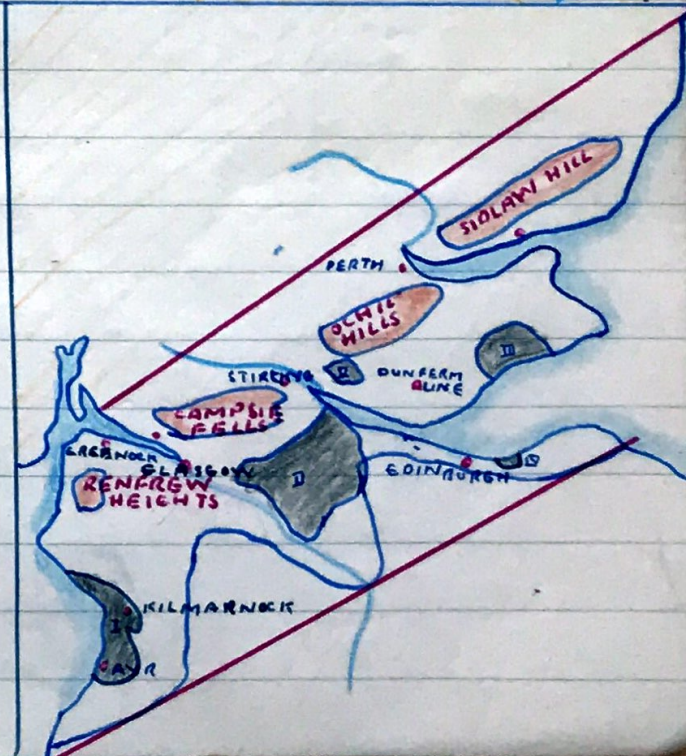 SIDLAW HILL
PERTH
OCHIL
HILLS
III
STIRLING
DUNFERM
ALINE
CAMPSIE
FELLS
GREENOCK
GLASGOW
II
EDINBURGH
RENFREW
HEIGHTS
KILMARNOCK
I
AYR